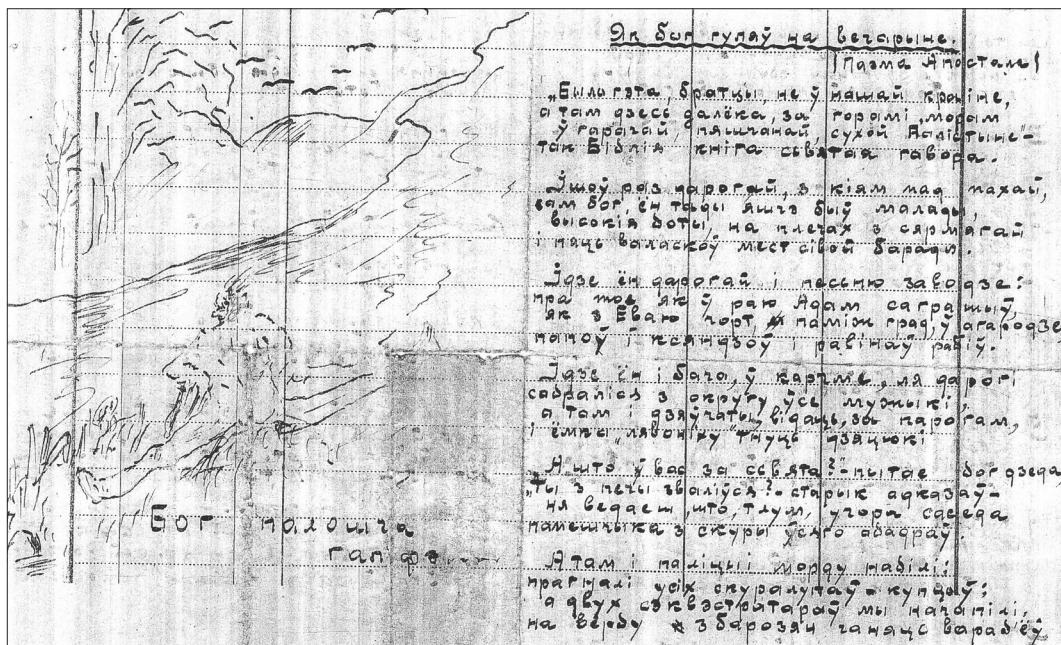 Як бог гуляў на вечарыне.
(Паэма Апостале)
„Было гэта, братцы, не ў нашай краіне,
а там дзесь далёка, за горамі, морам
ў гарачай, пяшчанай, сухой Палістыне"-
так Біблія кніга сьвятая гавора.
Ўшоў раз дарогай, з кіям пад пахай,
сам бог, ён тады яшчэ быў малады,
высокія боты, на плечах з сярмягай
і пяць валаскоў мест сівой барады.
Ўдзе ён дарогай і песьню заводзе:
пра тое як ў раю Адам саграшыў,
як з Еваю чорт, паміж град, ў агародзе
папоў і ксяндзоў і равінаў рабіў.
Ідзе ён і бача, ў карчме, ля дарогі
сабраліся з округу ўсе мужыкі,
а там і дзяўчаты, відаць, за парогам,
і ёмка „лявоніху" тнуць дзяцюкі
А што ў вас за сьвята?"-пытае бог дзеда
„Ты з печы зваліўся?-старык адказаў-
ня ведаеш, што, тлум, учора суседа
памешчыка з скуры ўсяго абадраў.
А там і паліцыі морду набілі;
прагналі усіх скуралупаў-купцоў;
а двух сэквэстратараў мы начапілі,
на вербу з барозян ганяць вараб'ёў
Бог полошча
гапфэ